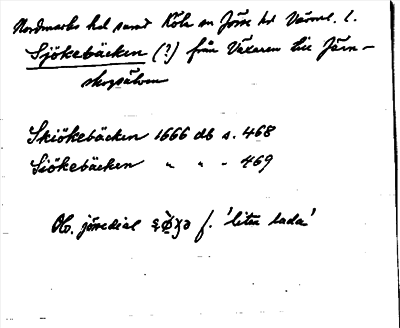 Nordmarks hd samt Köla sn Jösse hd Värml. l.
Sjökebäcken (?) från Växaren till Järn-
skogsälven
Skiökebäcken 1666 db s. 468
Siökebäcken " " - 469
Ob. jössedial f. 'liten lada'